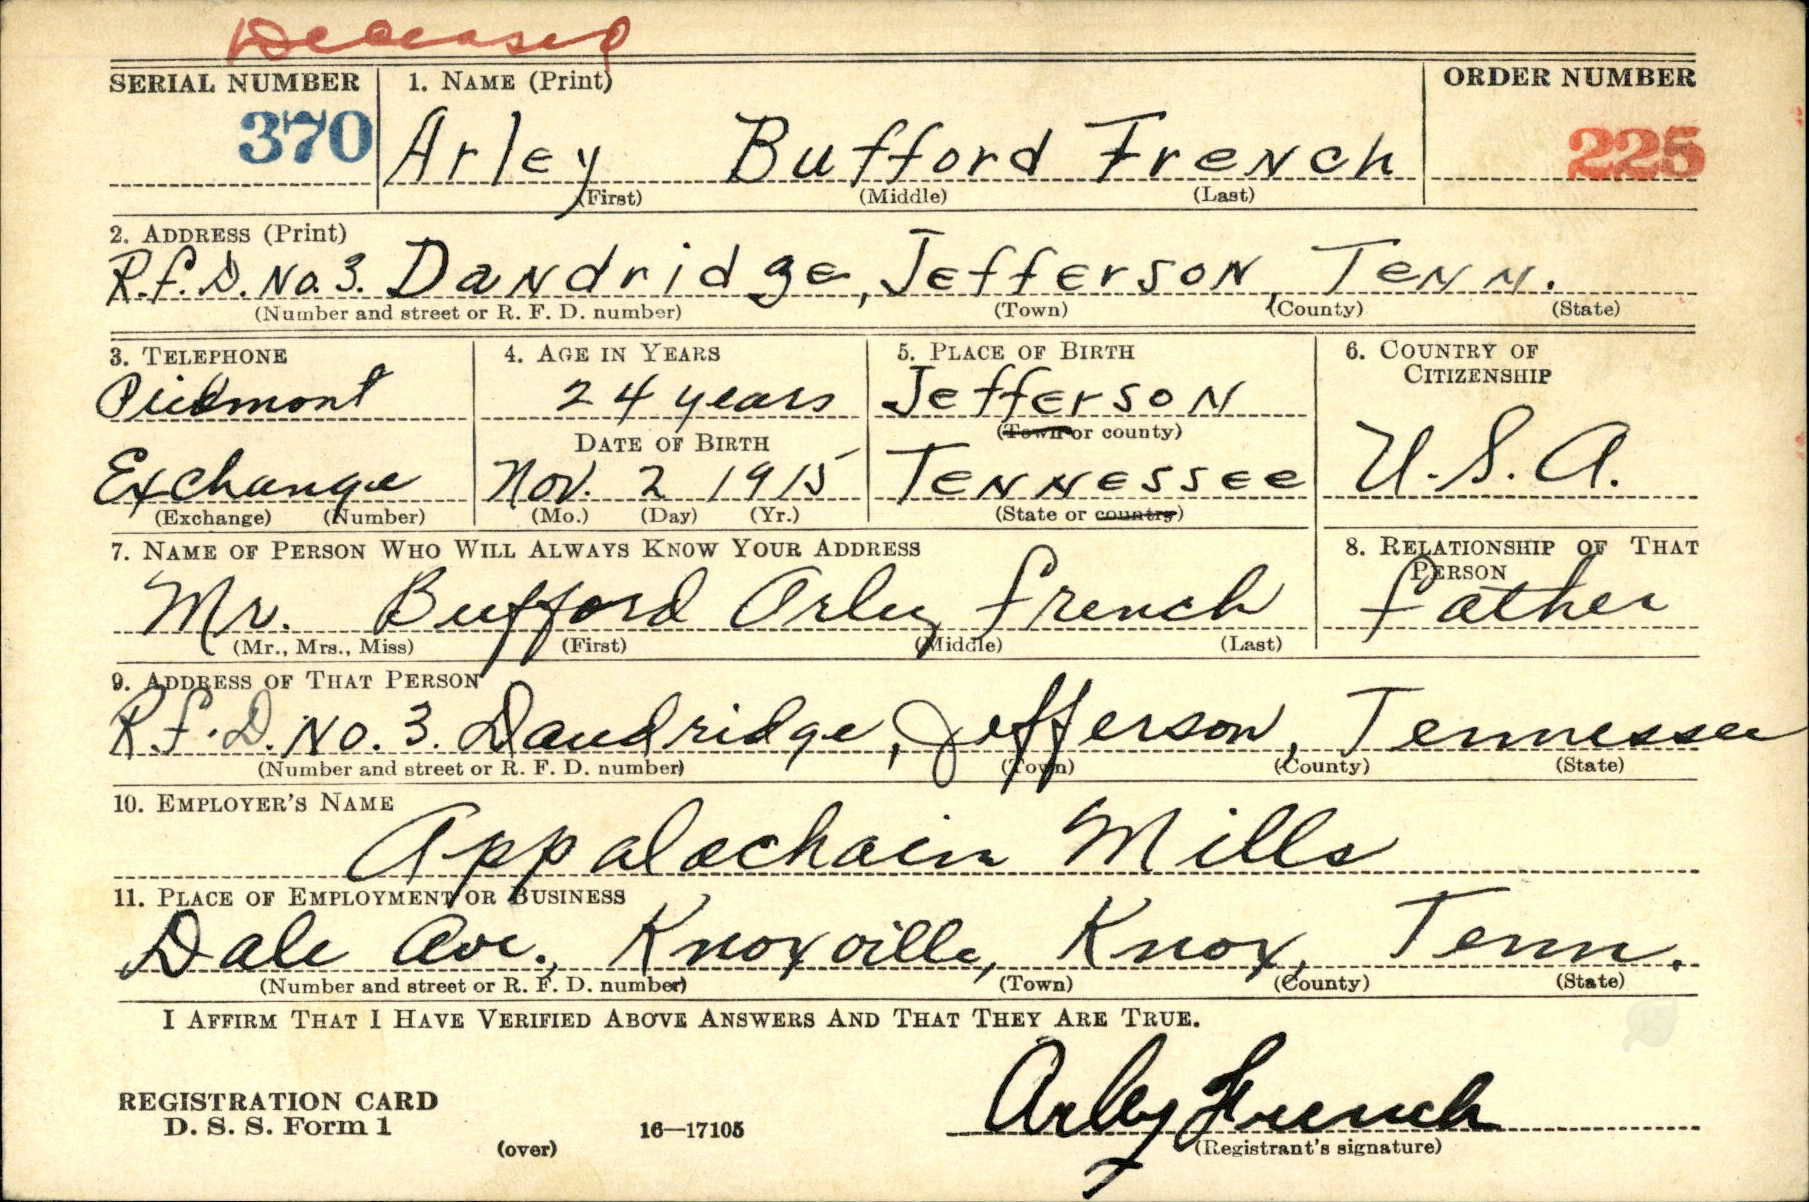 Deceased
SERIAL NUMBER 1. NAME (Print) ORDER NUMBER
370 Arley Bufford French 225
(First) (Middle) (Last)
2. ADDRESS (Print)
R.F.D. No. 3. Dandridge, Jefferson, Tenn.
(Number and street or R. F. D. number) (Town) (County) (State)
3. TELEPHONE 4. AGE IN YEARS 5. PLACE OF BIRTH 6. COUNTRY OF
CITIZENSHIP
Piedmont 24 years Jefferson
DATE OF BIRTH (Town or county)
Exchange Nov. 2 1915 Tennessee U.S.A.
(Exchange) (Number) (Mo.) (Day) (Yr.) (State or country)
7. NAME OF PERSON WHO WILL ALWAYS KNOW YOUR ADDRESS 8. RELATIONSHIP OF THAT
PERSON
Mr. Bufford Arley French Father
(Mr., Mrs., Miss) (First) (Middle) (Last)
9. ADDRESS OF THAT PERSON
R.F.D. No. 3. Dandridge, Jefferson, Tennessee
(Number and street or R. F. D. number) (Town) (County) (State)
10. EMPLOYER'S NAME
Appalachain Mills
11. PLACE OF EMPLOYMENT OR BUSINESS
Dale Ave., Knoxville, Knox, Tenn.
(Number and street or R. F. D. number) (Town) (County) (State)
I AFFIRM THAT I HAVE VERIFIED ABOVE ANSWERS AND THAT THEY ARE TRUE.
Arley French
REGISTRATION CARD
D. S. S. Form 1 16—17105
(over) (Registrant's signature)